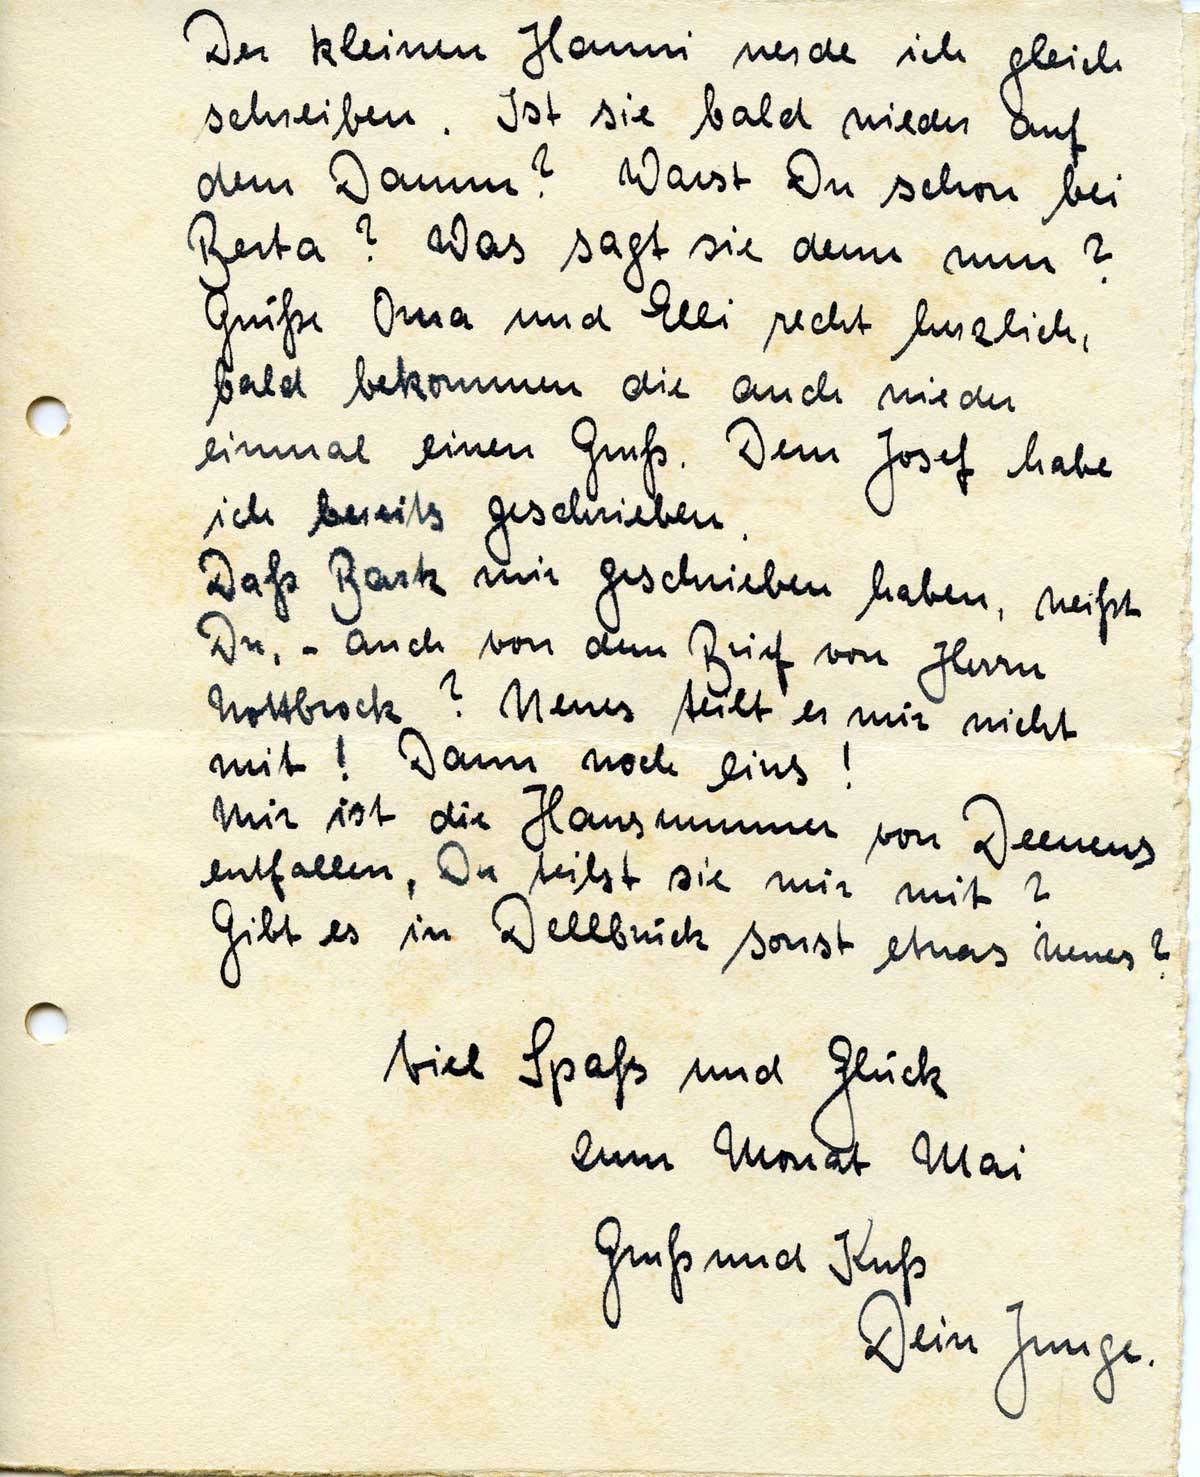 Der kleinen Hanni werde ich gleich
schreiben. Ist sie bald wieder auf
dem Damm? Warst Du schon bei
Berta? Was sagt sie denn nun?
Grüße Oma und Elli recht herzlich,
bald bekommen die auch wieder
einmal einen Gruß. Dem Josef habe
ich bereits geschrieben.
Daß Bark mir geschrieben haben, weißt
Du, - auch von dem Brief von Herrn
Nottbrock? Neues teilt er mir nicht
mit! Dann noch eins!
Mir ist die Hausnummer von
entfallen, Du teilst sie mir mit?
Gibt es in Dellbrück sonst etwas neues?
Viel Spaß und Glück
zum Monat Mai
Gruß und Kuß
Dein Junge.